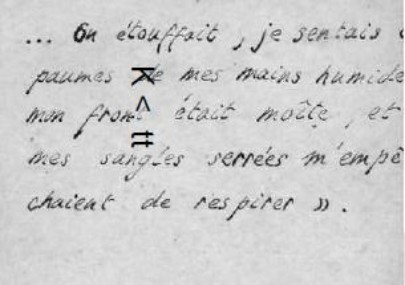 ... On étouffait, je sentais
paumes de mes mains humide
mon front était moîte, et
mes sangles serrées m'empê
chaient de respirer ».
K < tt